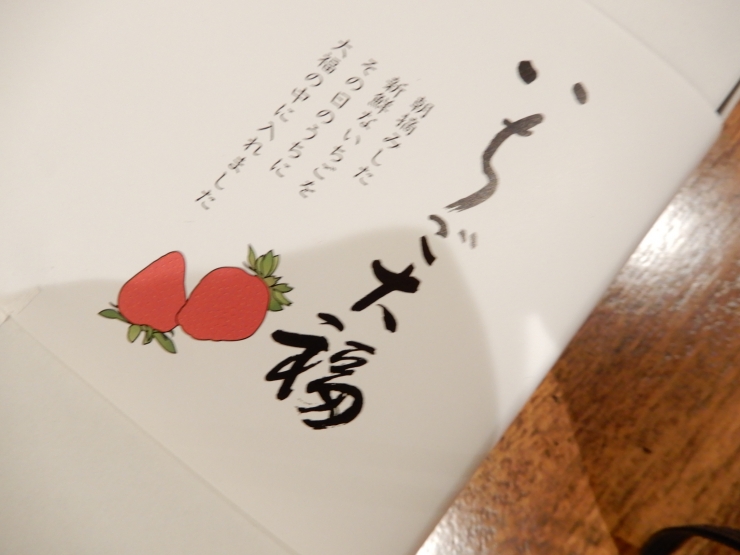 いちご大福
朝摘みした
新鮮ないちごを
その日のうちに
大福の中に入れました